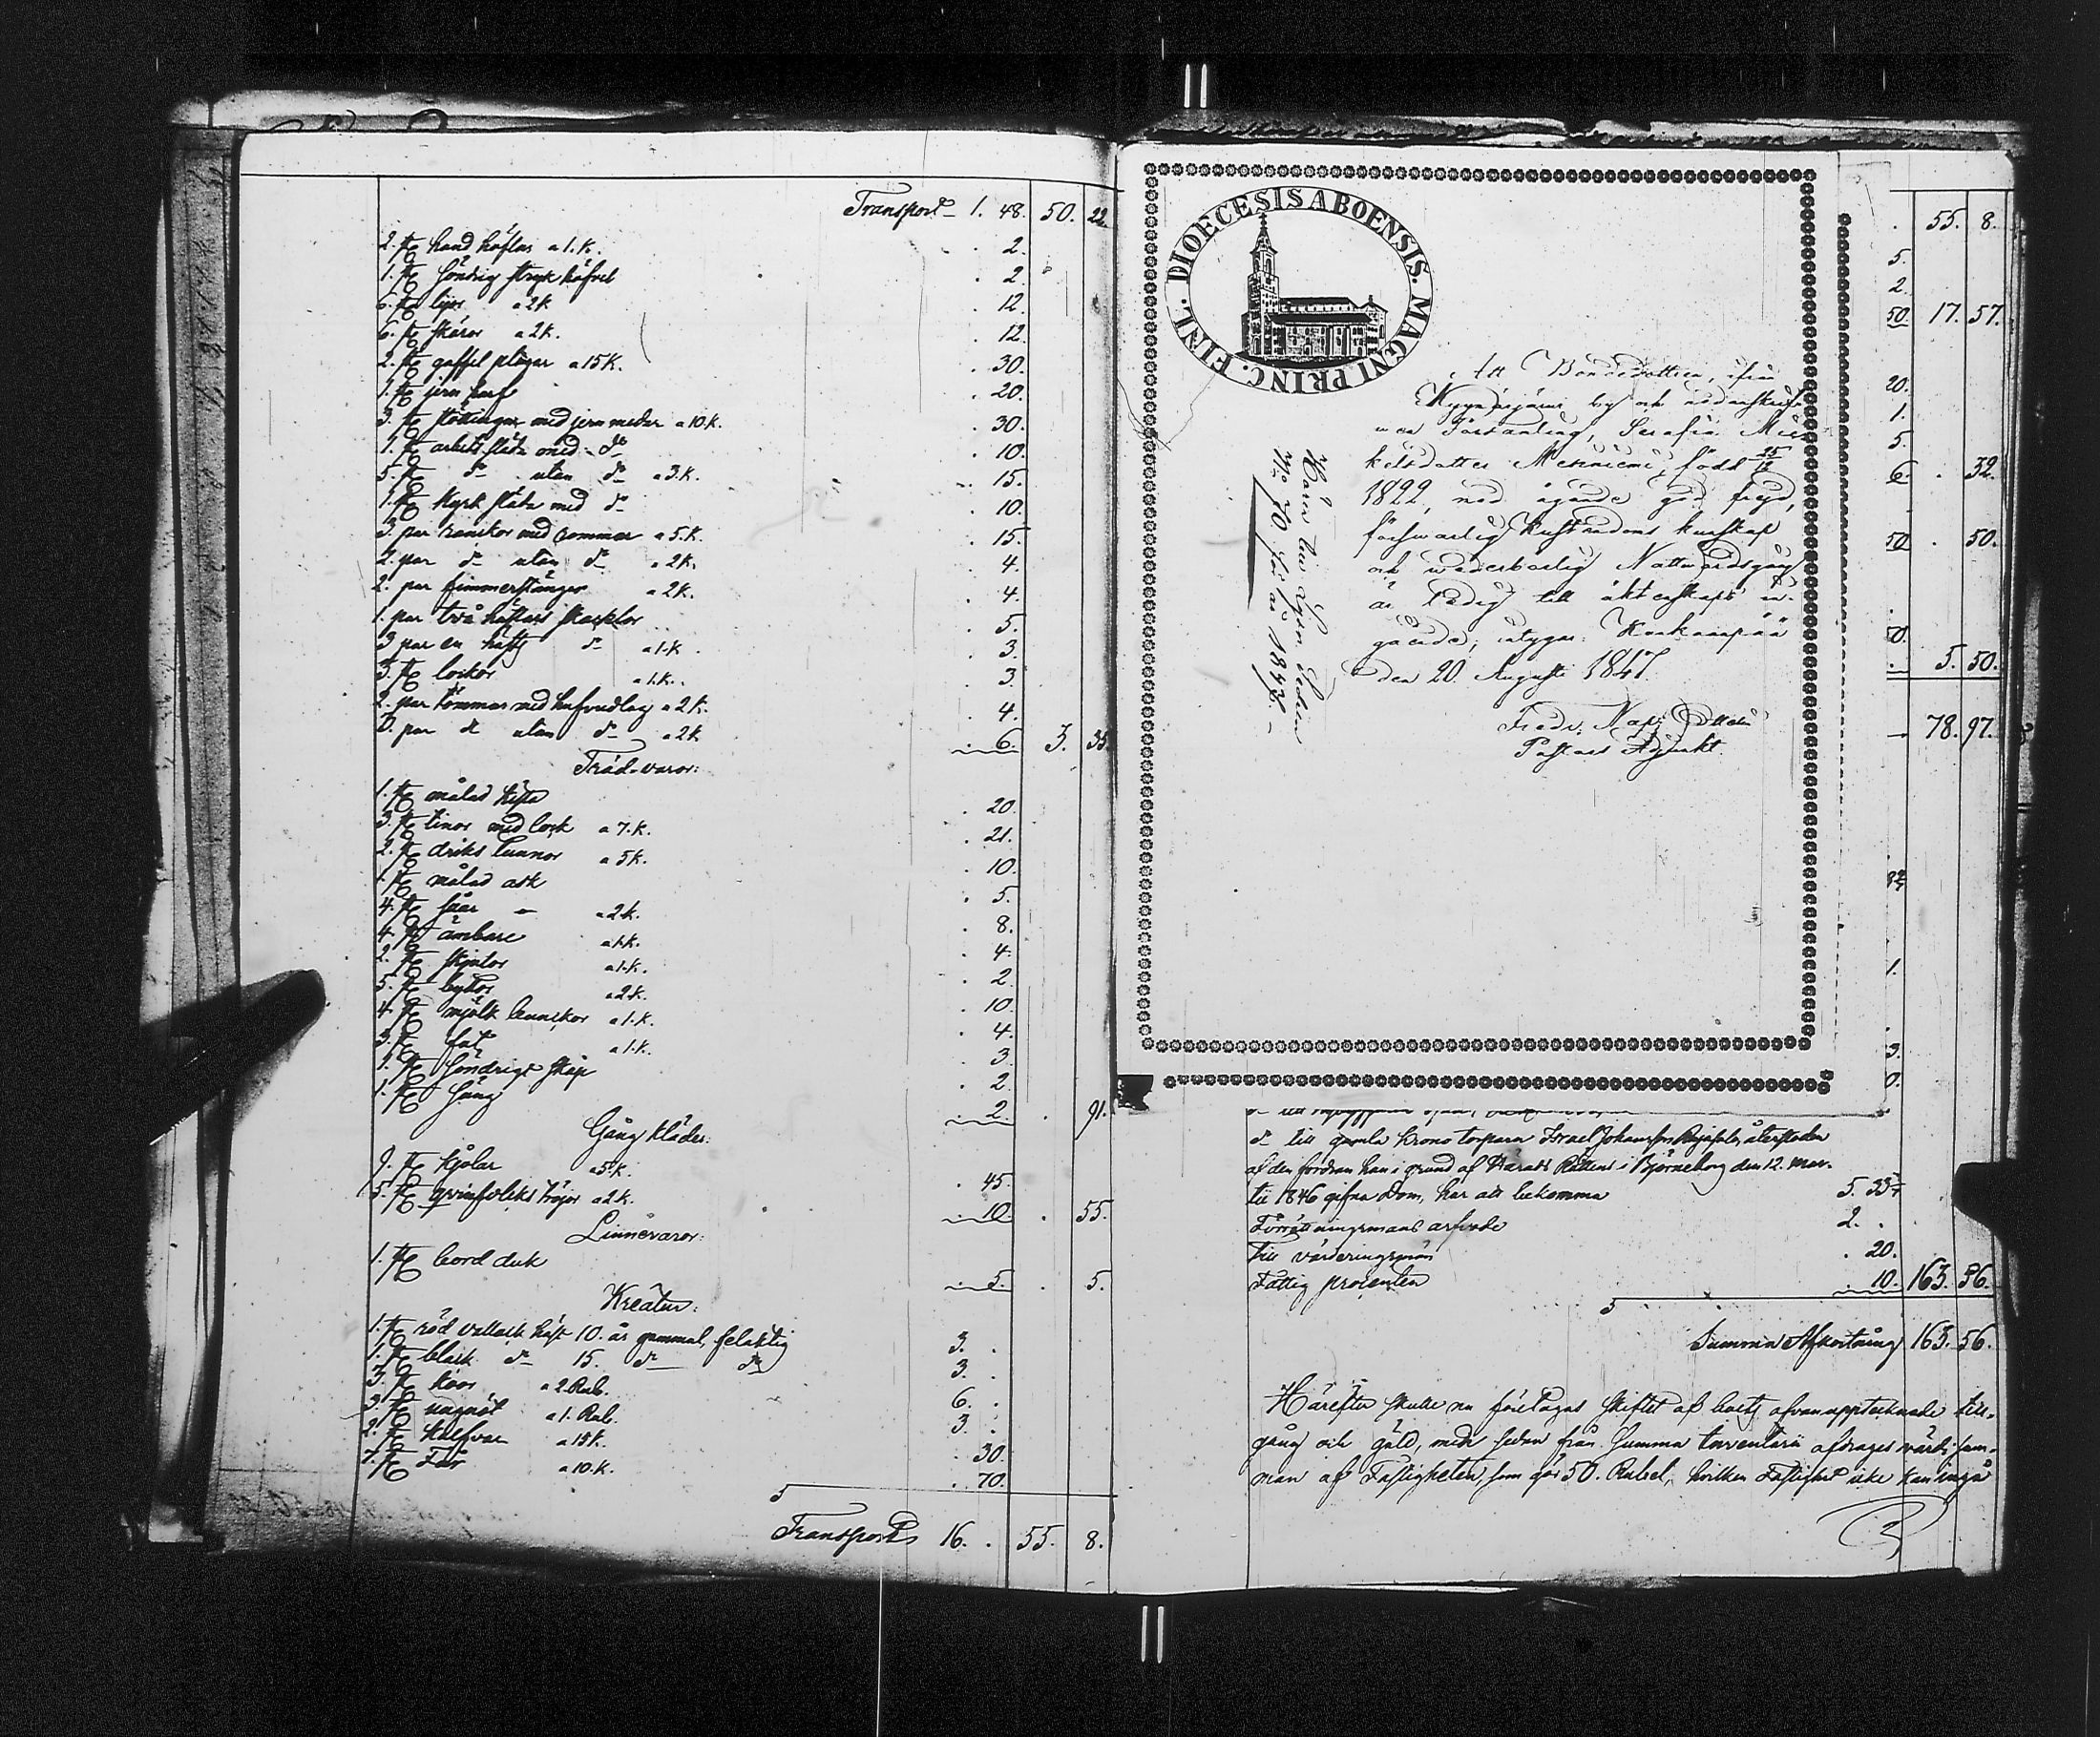 Transport 1. 48. 50. 22
2. st hand höflar a 1. K. . 2.
1. st söndrig stryk höfvel . 2.
6. st lijor a 2 K . 12.
6. st skäror a 2 K. . 12.
2. st gaffel plogar a 15 K. . 30.
1. st jern harf . 20.
3. st stöttingar med jern medar a 10. K. . 30.
1. st arbets släda med do . 10.
5. st do utan do a 3. K. . 15.
1. st kyrk släda med do . 10.
3. par rankor med rommor a 5. K. . 15.
2. par do utan do a 2 K. . 4.
2. par timmerstänger a 2 K. . 4.
1. par två häftars skacklor . 5.
3 par en häfts do a 1. K . 3.
3. st lockor a 1. K. . 3.
2. par tömmar med hufvudlag a 2 K. . 4.
3. par do utan do a 2 K . 6. 3. 35.
Träd-varor:
1. st målad kista . 20.
3. st tinor med lock a 7. K. . 21.
2. st dricks tunnor a 5 K. . 10.
1. st målad ask . 5.
4. st såar a 2 K. . 8.
4. st ämbare a 1 K. . 4.
2. st skjulor a 1. K. . 2.
5. st byttor a 2 K. . 10.
4. st mjölk bunckor a 1. K. . 4.
3. st fat a 1. K. . 3.
1. st söndrigt skåp . 2.
1. st säng . 2. . 91.
Gång kläder:
9. st kjolar a 5 K. . 45.
5. st qvinfolks tröjor a 2 K. . 10. . 55.
Linnevaror:
1. st bord duk . 5. . 5.
Kreatur:
1. st röd vallack häst 10. år gammal, felaktig 3. .
1. st black do 15. do do 3. .
3. st koor a 2. Rub. 6. .
3. st ungnöt a 1. Rub. 3. .
2. st kalfvar a 15 K. . 30.
7. st Får a 10. K. . 70.
Transport 16. . 55. 8.
DIOECESIS ABOENSIS. MAGNI PRINC. FINL.
Att Bondedottren, ifrån
by och
Församling, Serafia Mic-
kelsdotter Meriniemi, född 25/12
1822, med ägande god frejd,
försvarlig Christendoms kunskap
och wederbörlig Nattwardsgång
är ledig till äktenskaps in-
gående; intygar: Kankaanpää
den 20. Augusti 1847.
Fredr.
Pastors Adjunkt.
Hörer till Lysn. Sedeln
No 70 för år 1847.
55. 8.
5.
2.
50. 17. 57.
20.
1.
5.
6. . 32.
50 . 50.
50.
. 5. 50.
78. 97.
1.
3.
0.
do till gamla krono torparen Israel Johansson återstoden
af den fordran han i grund af Härads Rättens i Björneborg den 12. Mar-
tii 1846 gifna Dom, har att bekomma 5. 33 1/7
Förrättningsmans arfvode 2. .
Till värderingsmän . 20.
Fattig procenten . 10. 163. 56.
Summa Afkortning 163. 56.
Härefter skulle nu företagas skiftet af boets ofvanupptecknade till-
gång och gäld, men sedan från Summa Inventarii afdrages värdi sum-
man af Fastigheten, som gör 50. Rubel, hvilken Fastighet icke kan ingå